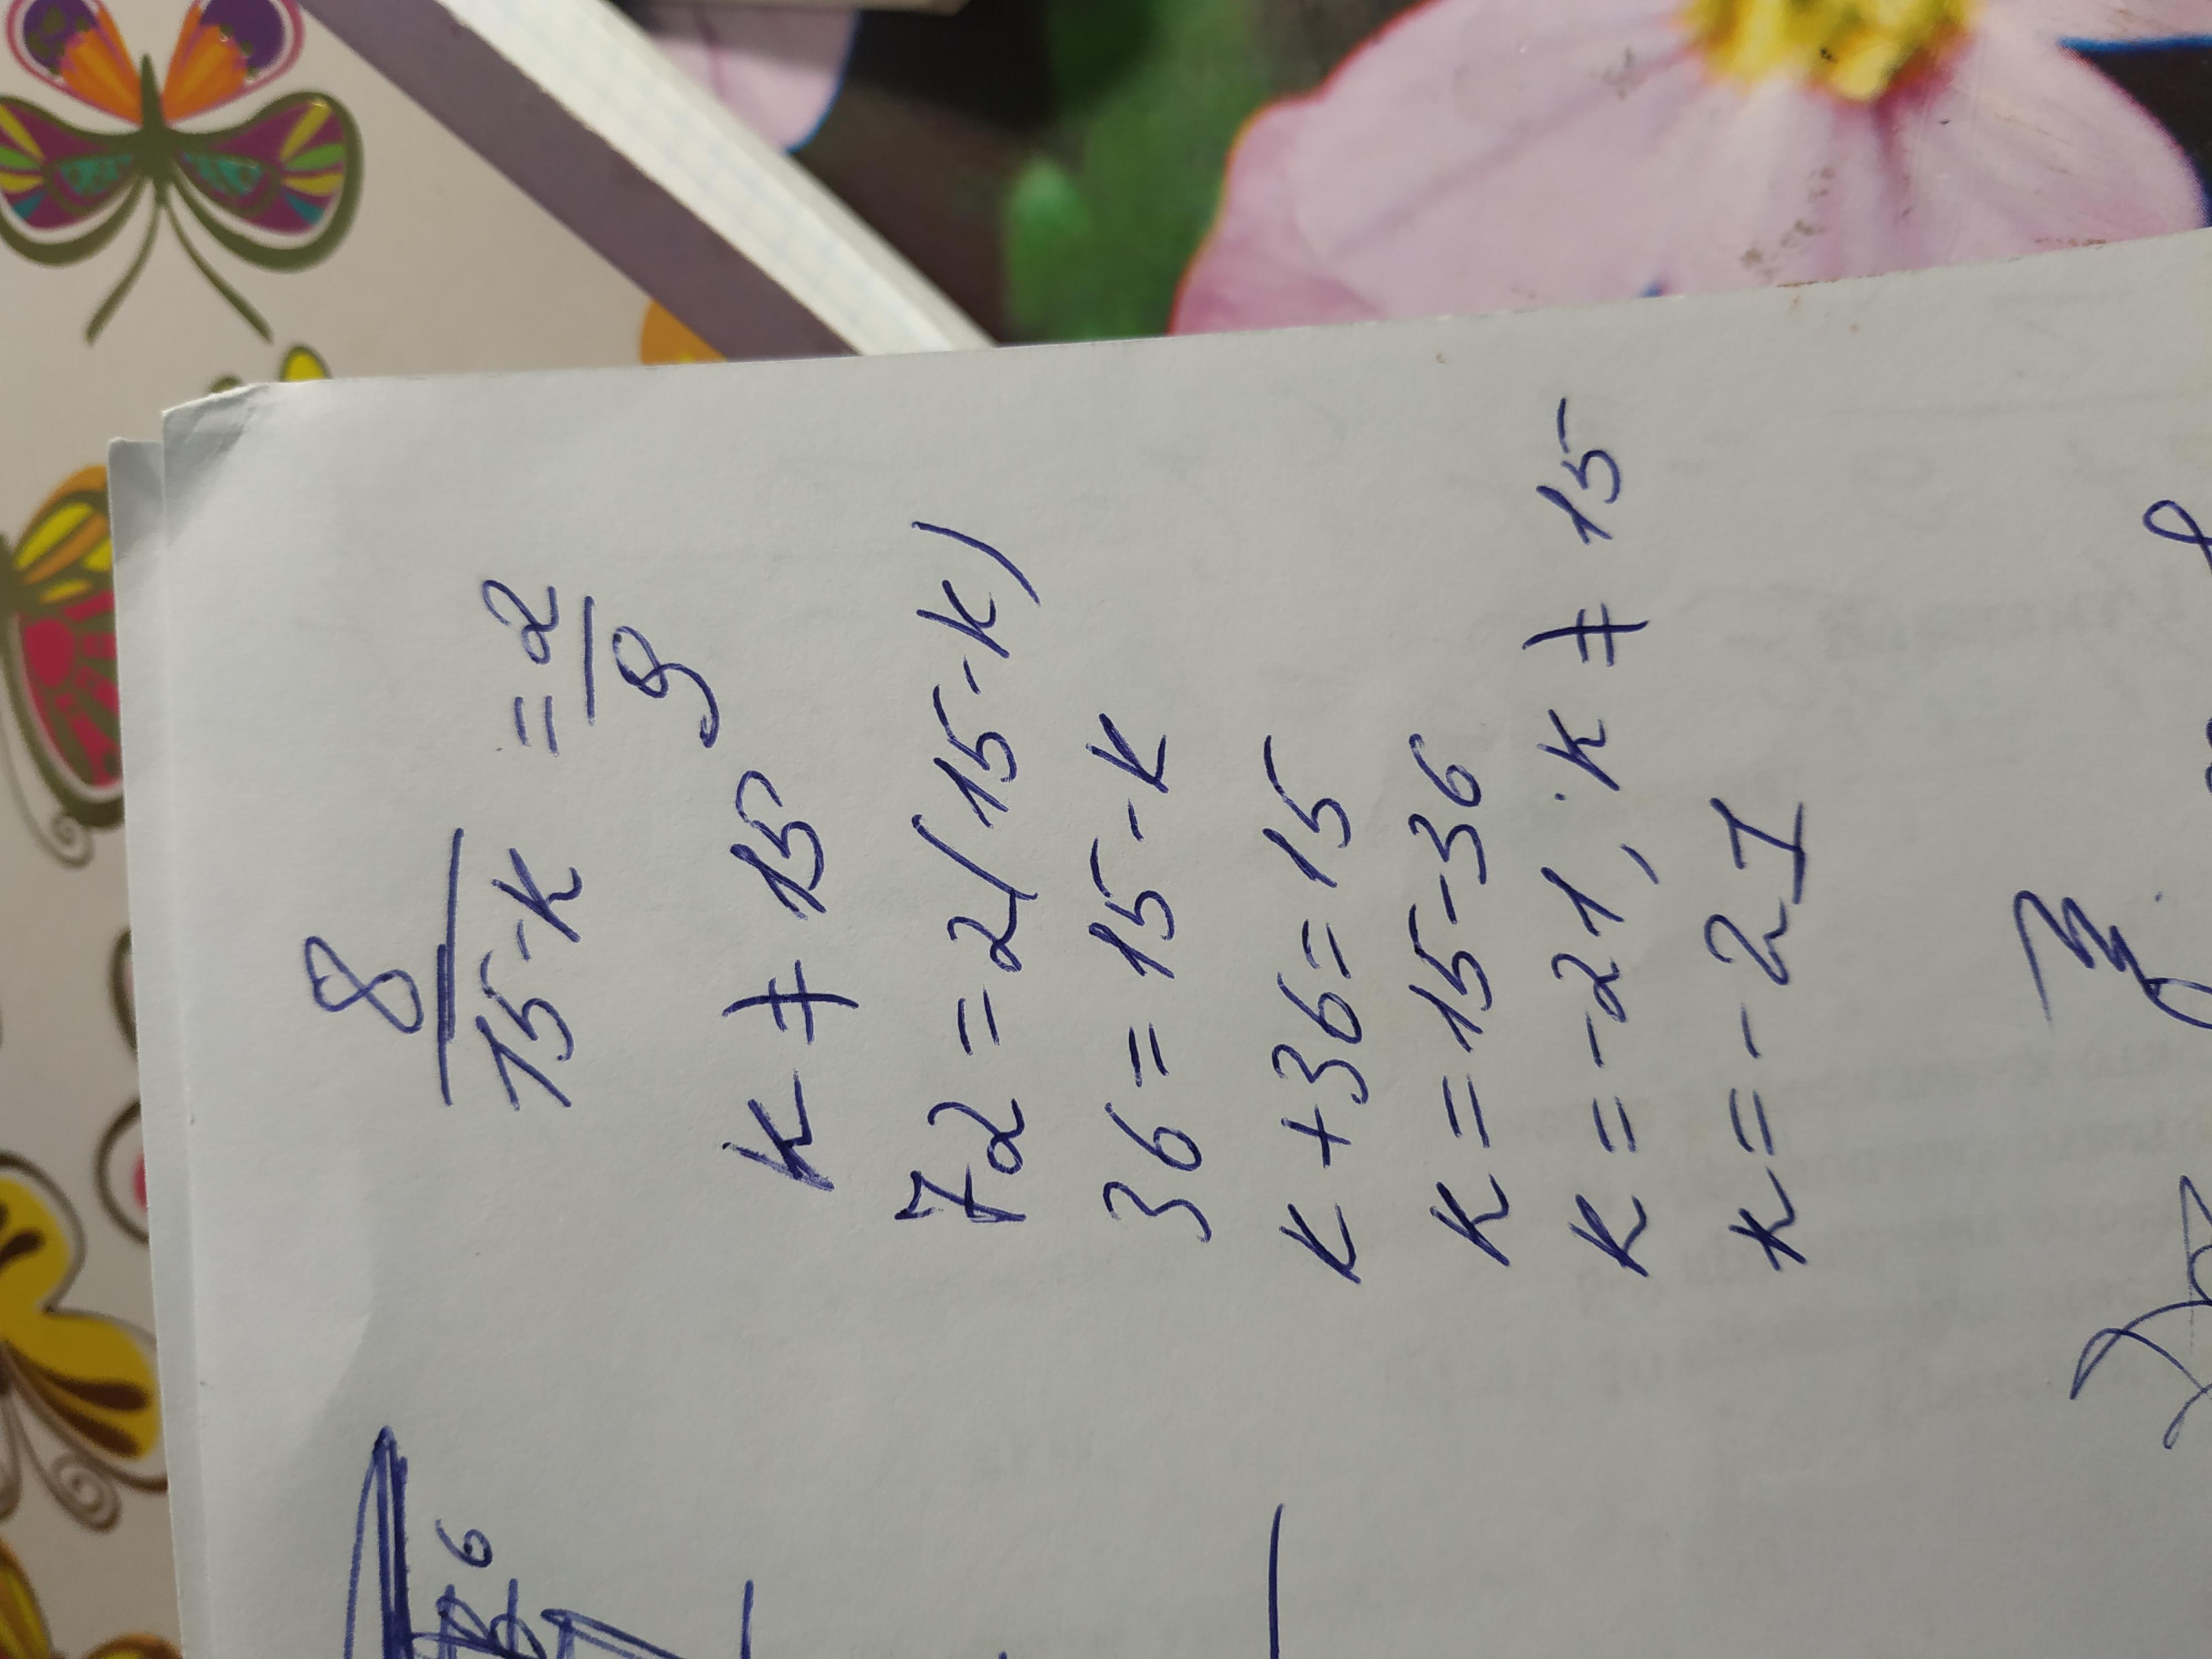 8/(15-k) = 2/9
k ≠ 15
72 = 2(15-k)
36 = 15-k
k+36=15
k=15-36
k=-21, k ≠ 15
k=-21
6